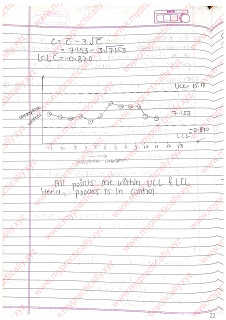 C = C̄ - 3√C̄
= 7.153 - 3√7.153
LCL C = -0.870
UCL
7.153
LCL
-0.870
1 2 3 4 5 6 7 8 9 10 11 12 13
All points are within UCL & LCL
Hence, process is in control.
22